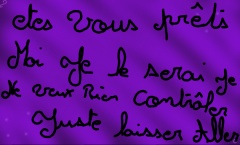 etes vous prêts
Moi je le serai je
Ne veux Rien Contrôler
Juste laisser Aller